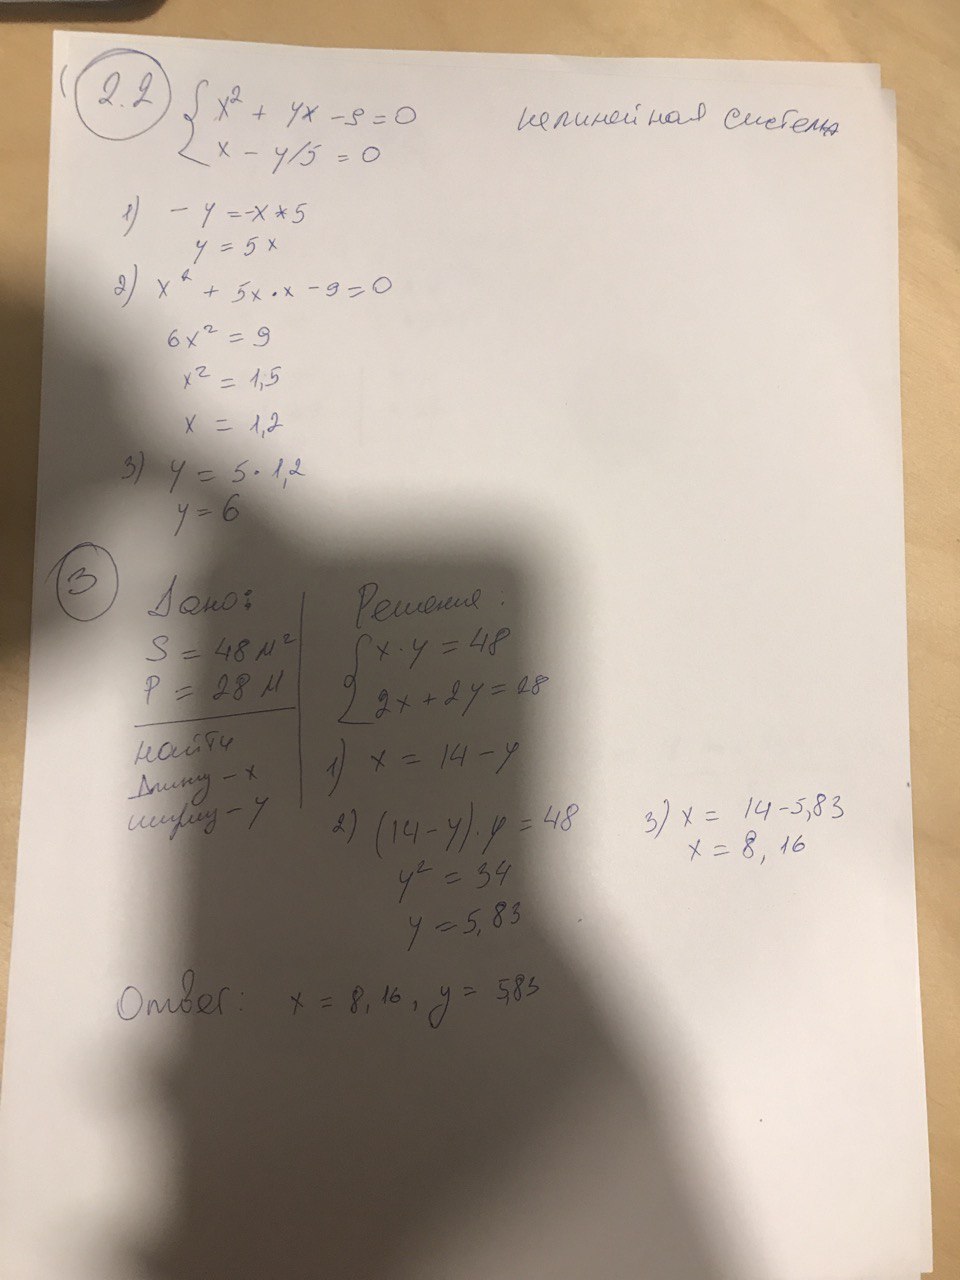 2.2
x² + yx - 9 = 0
нелинейная система
x - y/5 = 0
1) - y = -x * 5
y = 5x
2) x² + 5x · x - 9 = 0
6x² = 9
x² = 1,5
x = 1,2
3) y = 5 · 1,2
y = 6
3
Дано:
S = 48 м²
P = 28 м
найти
Длину - x
ширину - y
Решение:
x · y = 48
2x + 2y = 28
1) x = 14 - y
2) (14 - y) · y = 48
y² = 34
y = 5,83
3) x = 14 - 5,83
x = 8,16
Ответ: x = 8,16, y = 5,83